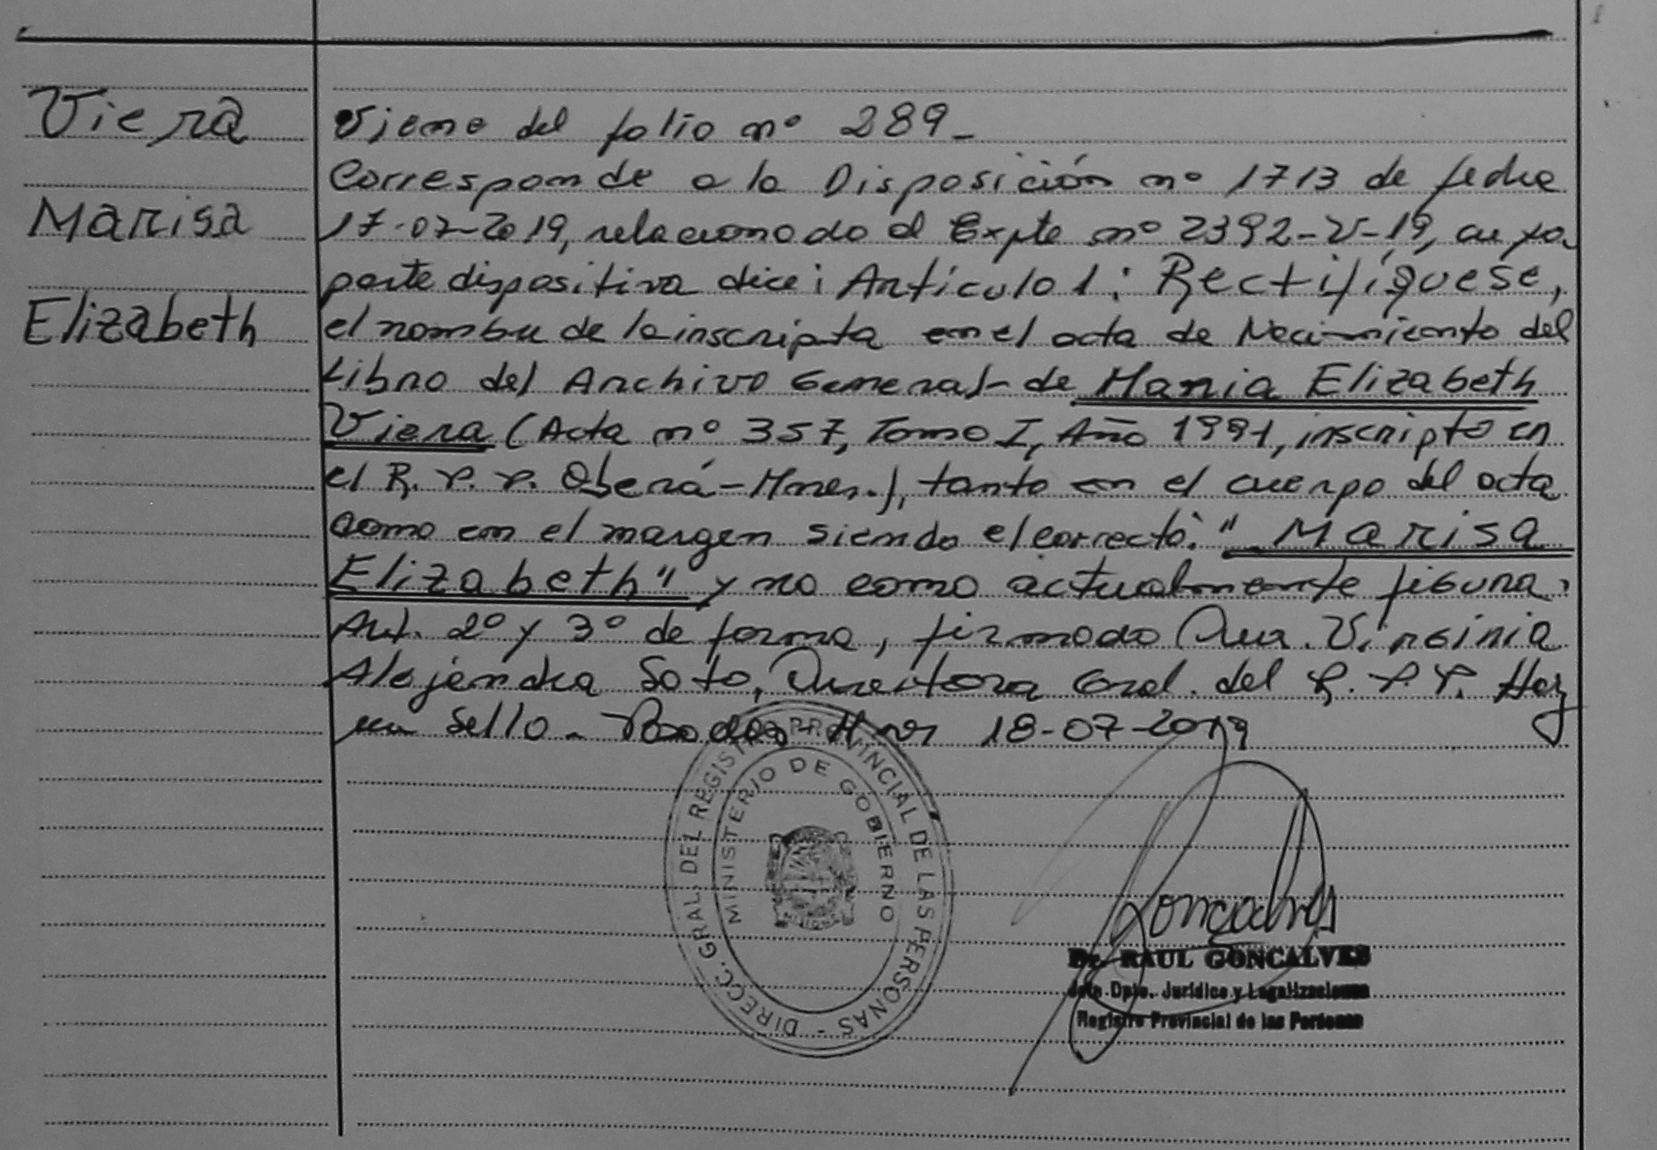 Viera
Marisa
Elizabeth
Viene del folio nº 289_
Corresponde a la Disposición nº 1713 de fecha
17-07-2019, relacionado al Expte nº 2392-V-19, cuya
parte dispositiva dice: Artículo 1: Rectifíquese,
el nombre de la inscripta en el acta de Nacimiento del
Libro del Archivo General de Maria Elizabeth
Viera (Acta nº 357, Tomo I, Año 1991, inscripto en
el R. P. P. Oberá-Mnes.), tanto en el cuerpo del acta
como en el margen siendo el correcto: "Marisa
Elizabeth" y no como actualmente figura.
Art. 2º y 3º de forma, firmado Virginia
Alejandra Soto, Directora Gral. del R. P. P. Hay
un Sello. 18-07-2019
DIRECC. GRAL. DEL REGISTRO PROVINCIAL DE LAS PERSONAS -
MINISTERIO DE GOBIERNO
Goncalves
Dr. RAUL GONCALVES
Jefe Dpto. Jurídico y Legalizaciones
Registro Provincial de las Personas